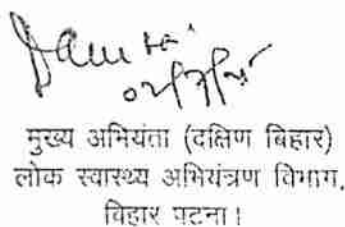 मुख्य अभियंता (दक्षिण बिहार)
लोक स्वास्थ्य अभियंत्रण विभाग,
बिहार पटना।